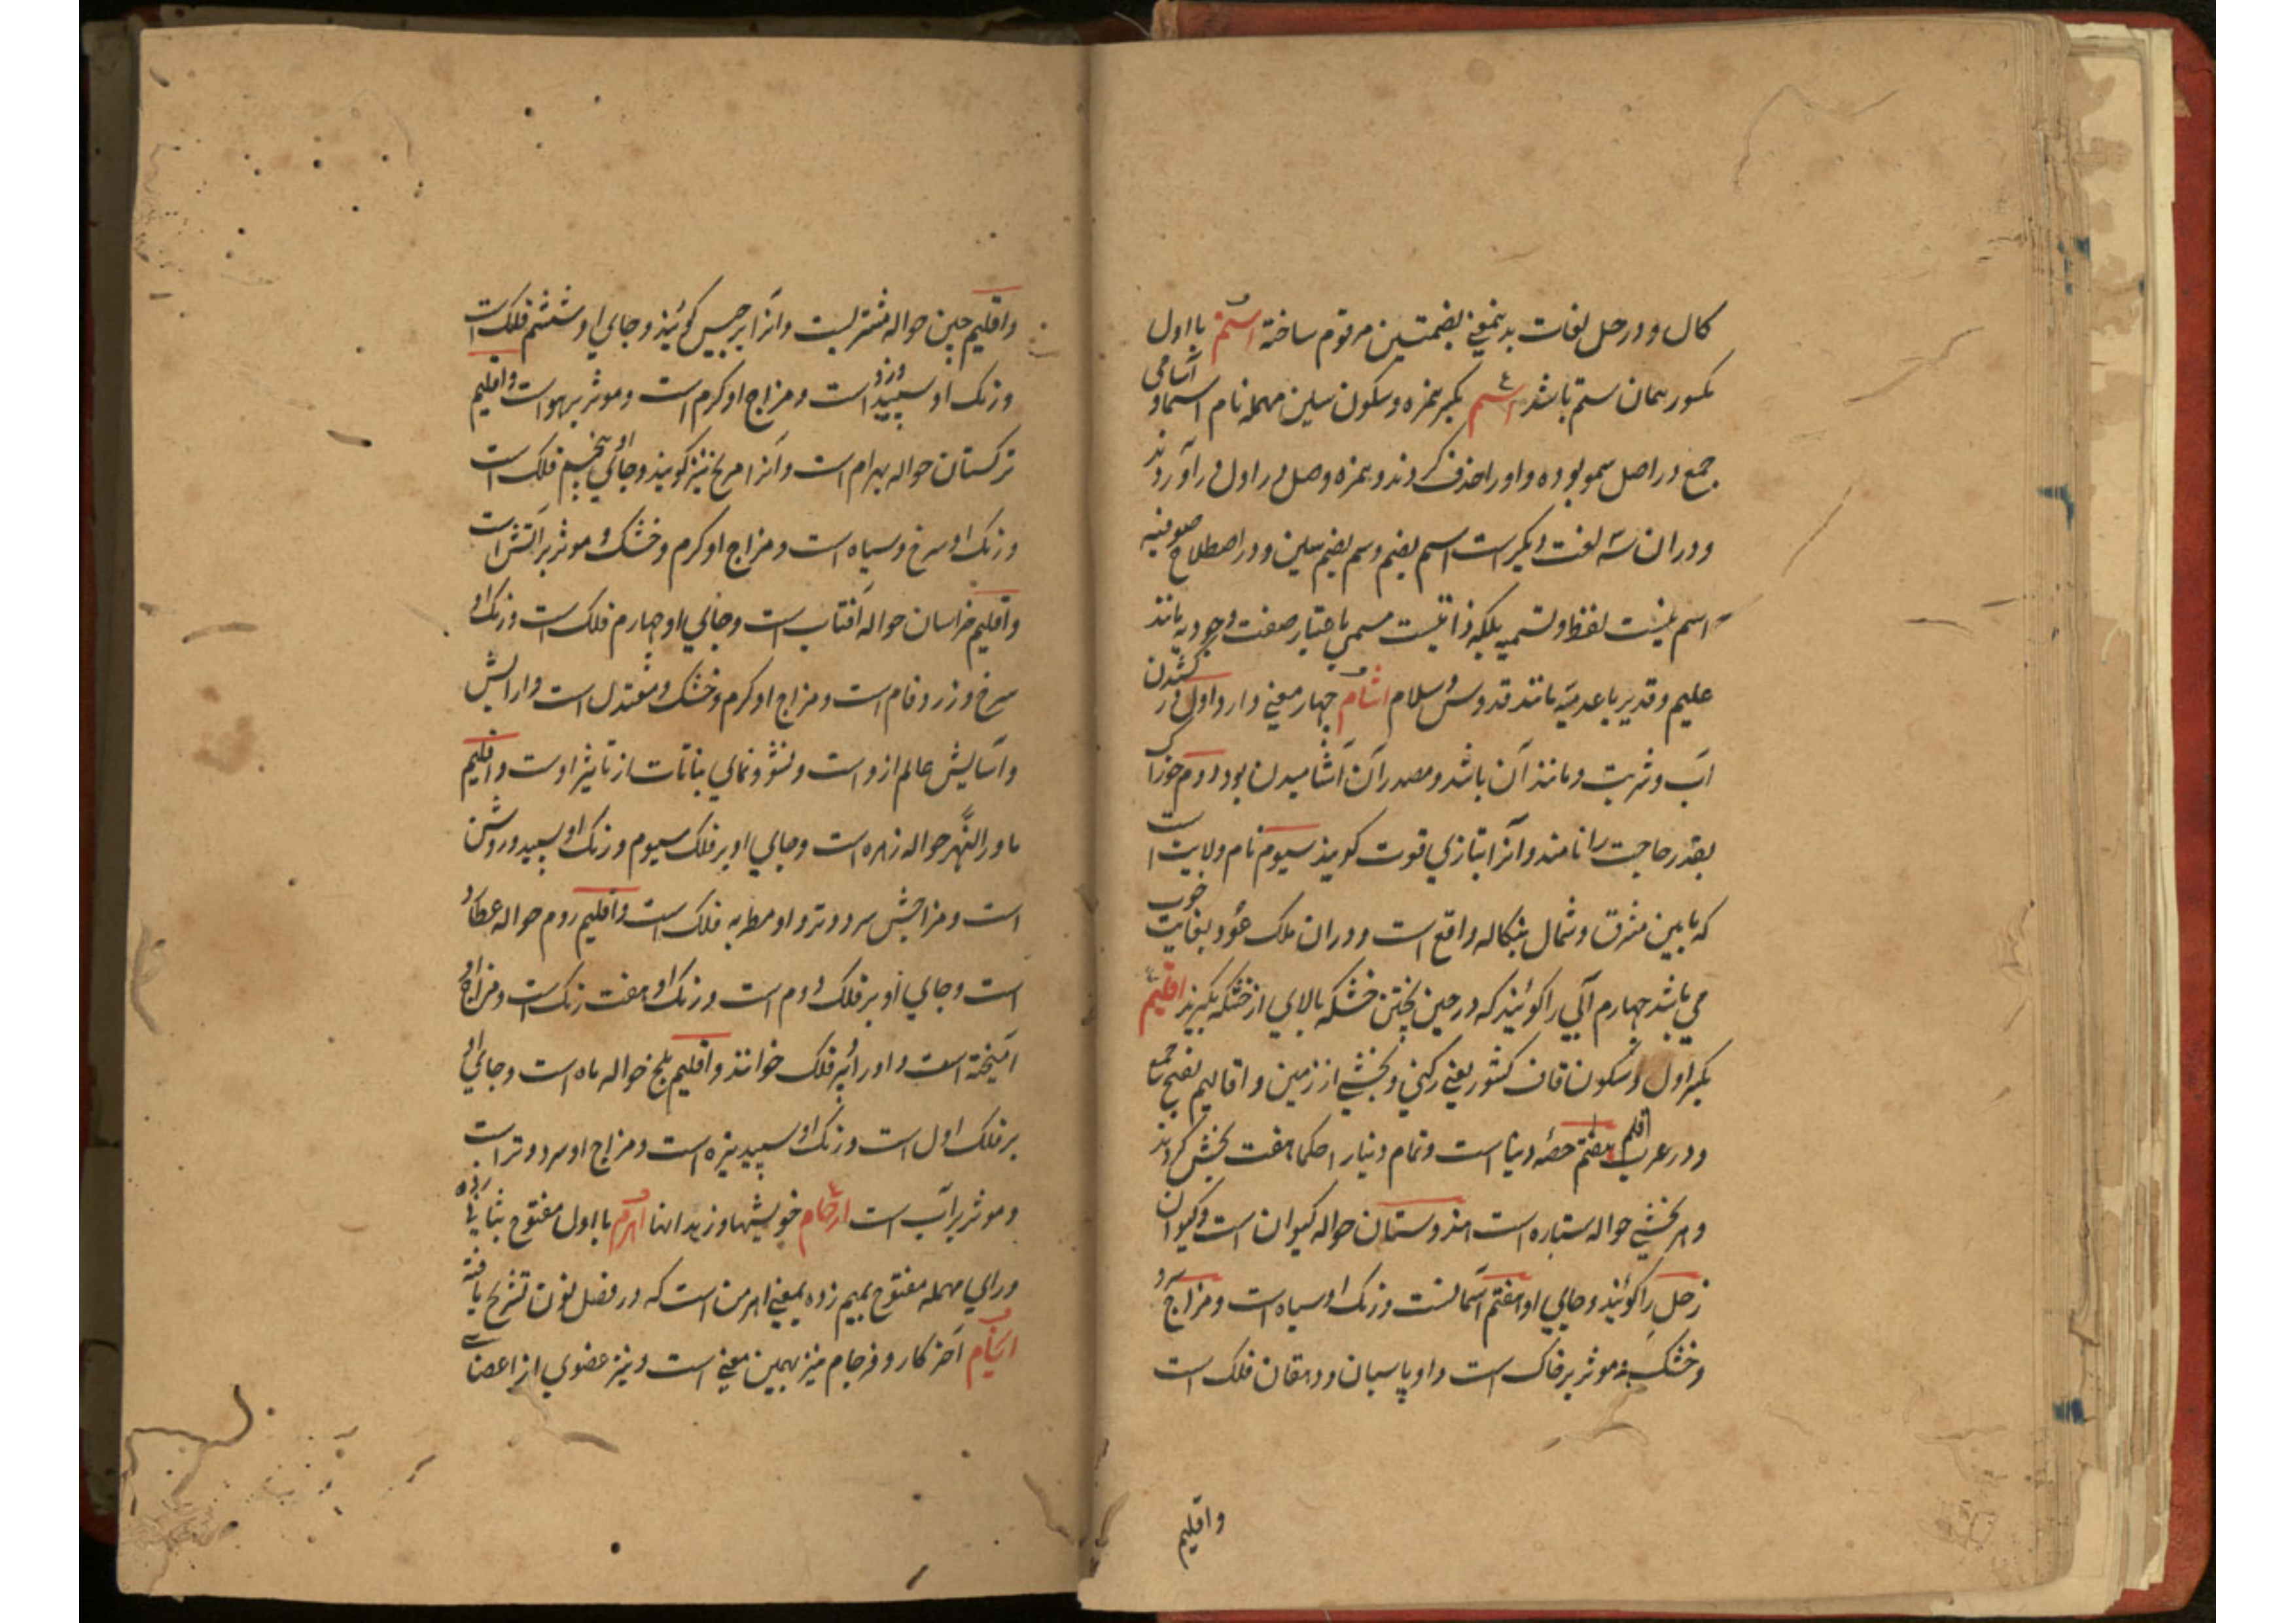 کال و در حل لغات بدینمعنی بضمتین مرقوم ساخته استم با اول
مکسور همان ستم باشد اسم بکسر همزه و سکون سین مهمله نام اسما و آسامی
جمع در اصل سمو بوده واو را حذف کردند و همزه وصل در اول در آوردند
و در ان سه لغت دیگر است اسم بضم و سم بضم سین و در اصطلاح صوفیه
اسم نیست لفظ و تسمیه بلکه ذاتیست مسمی باعتبار صفت وجودیه مانند
علیم و قدیر یا عدمیه مانند قدوس و سلام اشام چهار معنی دارد اول در کشیدن
آب و شربت و مانند آن باشد و مصدر آن آشامیدن بود دوم خوراک
بقدر حاجت را نامند و آنرا بتازی قوت گویند سیوم نام ولایت است
که مابین مشرق و شمال بنگاله واقع است و دران ملک عود بغایت خوب
می باشد چهارم آبی را گویند که در حین پختن خشکه بالای از خشکه بگیرند اقلیم
بکسر اول و سکون قاف کشور یعنی رکنی و بخشی از زمین و اقالیم بفتح جمع
و در عرب اقلیم هفتم حصه دنیا است و تمام دنیا را حکما هفت بخش کردند
و هر بخشی حواله ستاره است هندوستان حواله کیوان است و کیوان
زحل را گویند و جای او هفتم آسمانست و رنک او سیاه است و مزاج او
و خشک و موثر بر خاک است و او پاسبان و دهقان فلک است
و اقلیم
و اقلیم چین حواله مشتریست و آنرا برجیس گویند و جای او ششم فلک است
و رنک او سپید زرد است و مزاج او گرم است و موثر بر هوا است و اقلیم
ترکستان حواله بهرام است و آنرا مریخ نیز گویند و جای او پنجم فلک است
و رنک او سرخ و سیاه است و مزاج او گرم و خشک و موثر بر آتش است
و اقلیم خراسان حواله آفتاب است و جای او چهارم فلک است و رنک او
سرخ و زرد فام است و مزاج او گرم و خشک و معتدل است و آرایش
و آسایش عالم ازو است و نشو و نمای نباتات از تاثیر اوست و اقلیم
ماورالنهر حواله زهره است و جای او بر فلک سیوم و رنک او سپید و روشن
است و مزاجش سرد و تر و او مطربه فلک است و اقلیم روم حواله عطارد
است و جای او بر فلک دوم است و رنک او هفت رنک است و مزاج او
آمیخته است و او را دبیر فلک خوانند و اقلیم بلخ حواله ماه است و جای او
بر فلک اول است و رنک او سپید تیره است و مزاج او سرد و تر است
و موثر بر آب است ارحام خویشها و زهدانها اهرم با اول مفتوح بثانی زده
و رای مهمله مفتوح بمیم زده بمعنی اهرمن است که در فصل نون تشریح یافته
انجام آخر کار و فرجام نیز بهمین معنی است و نیز عضوی از اعضای